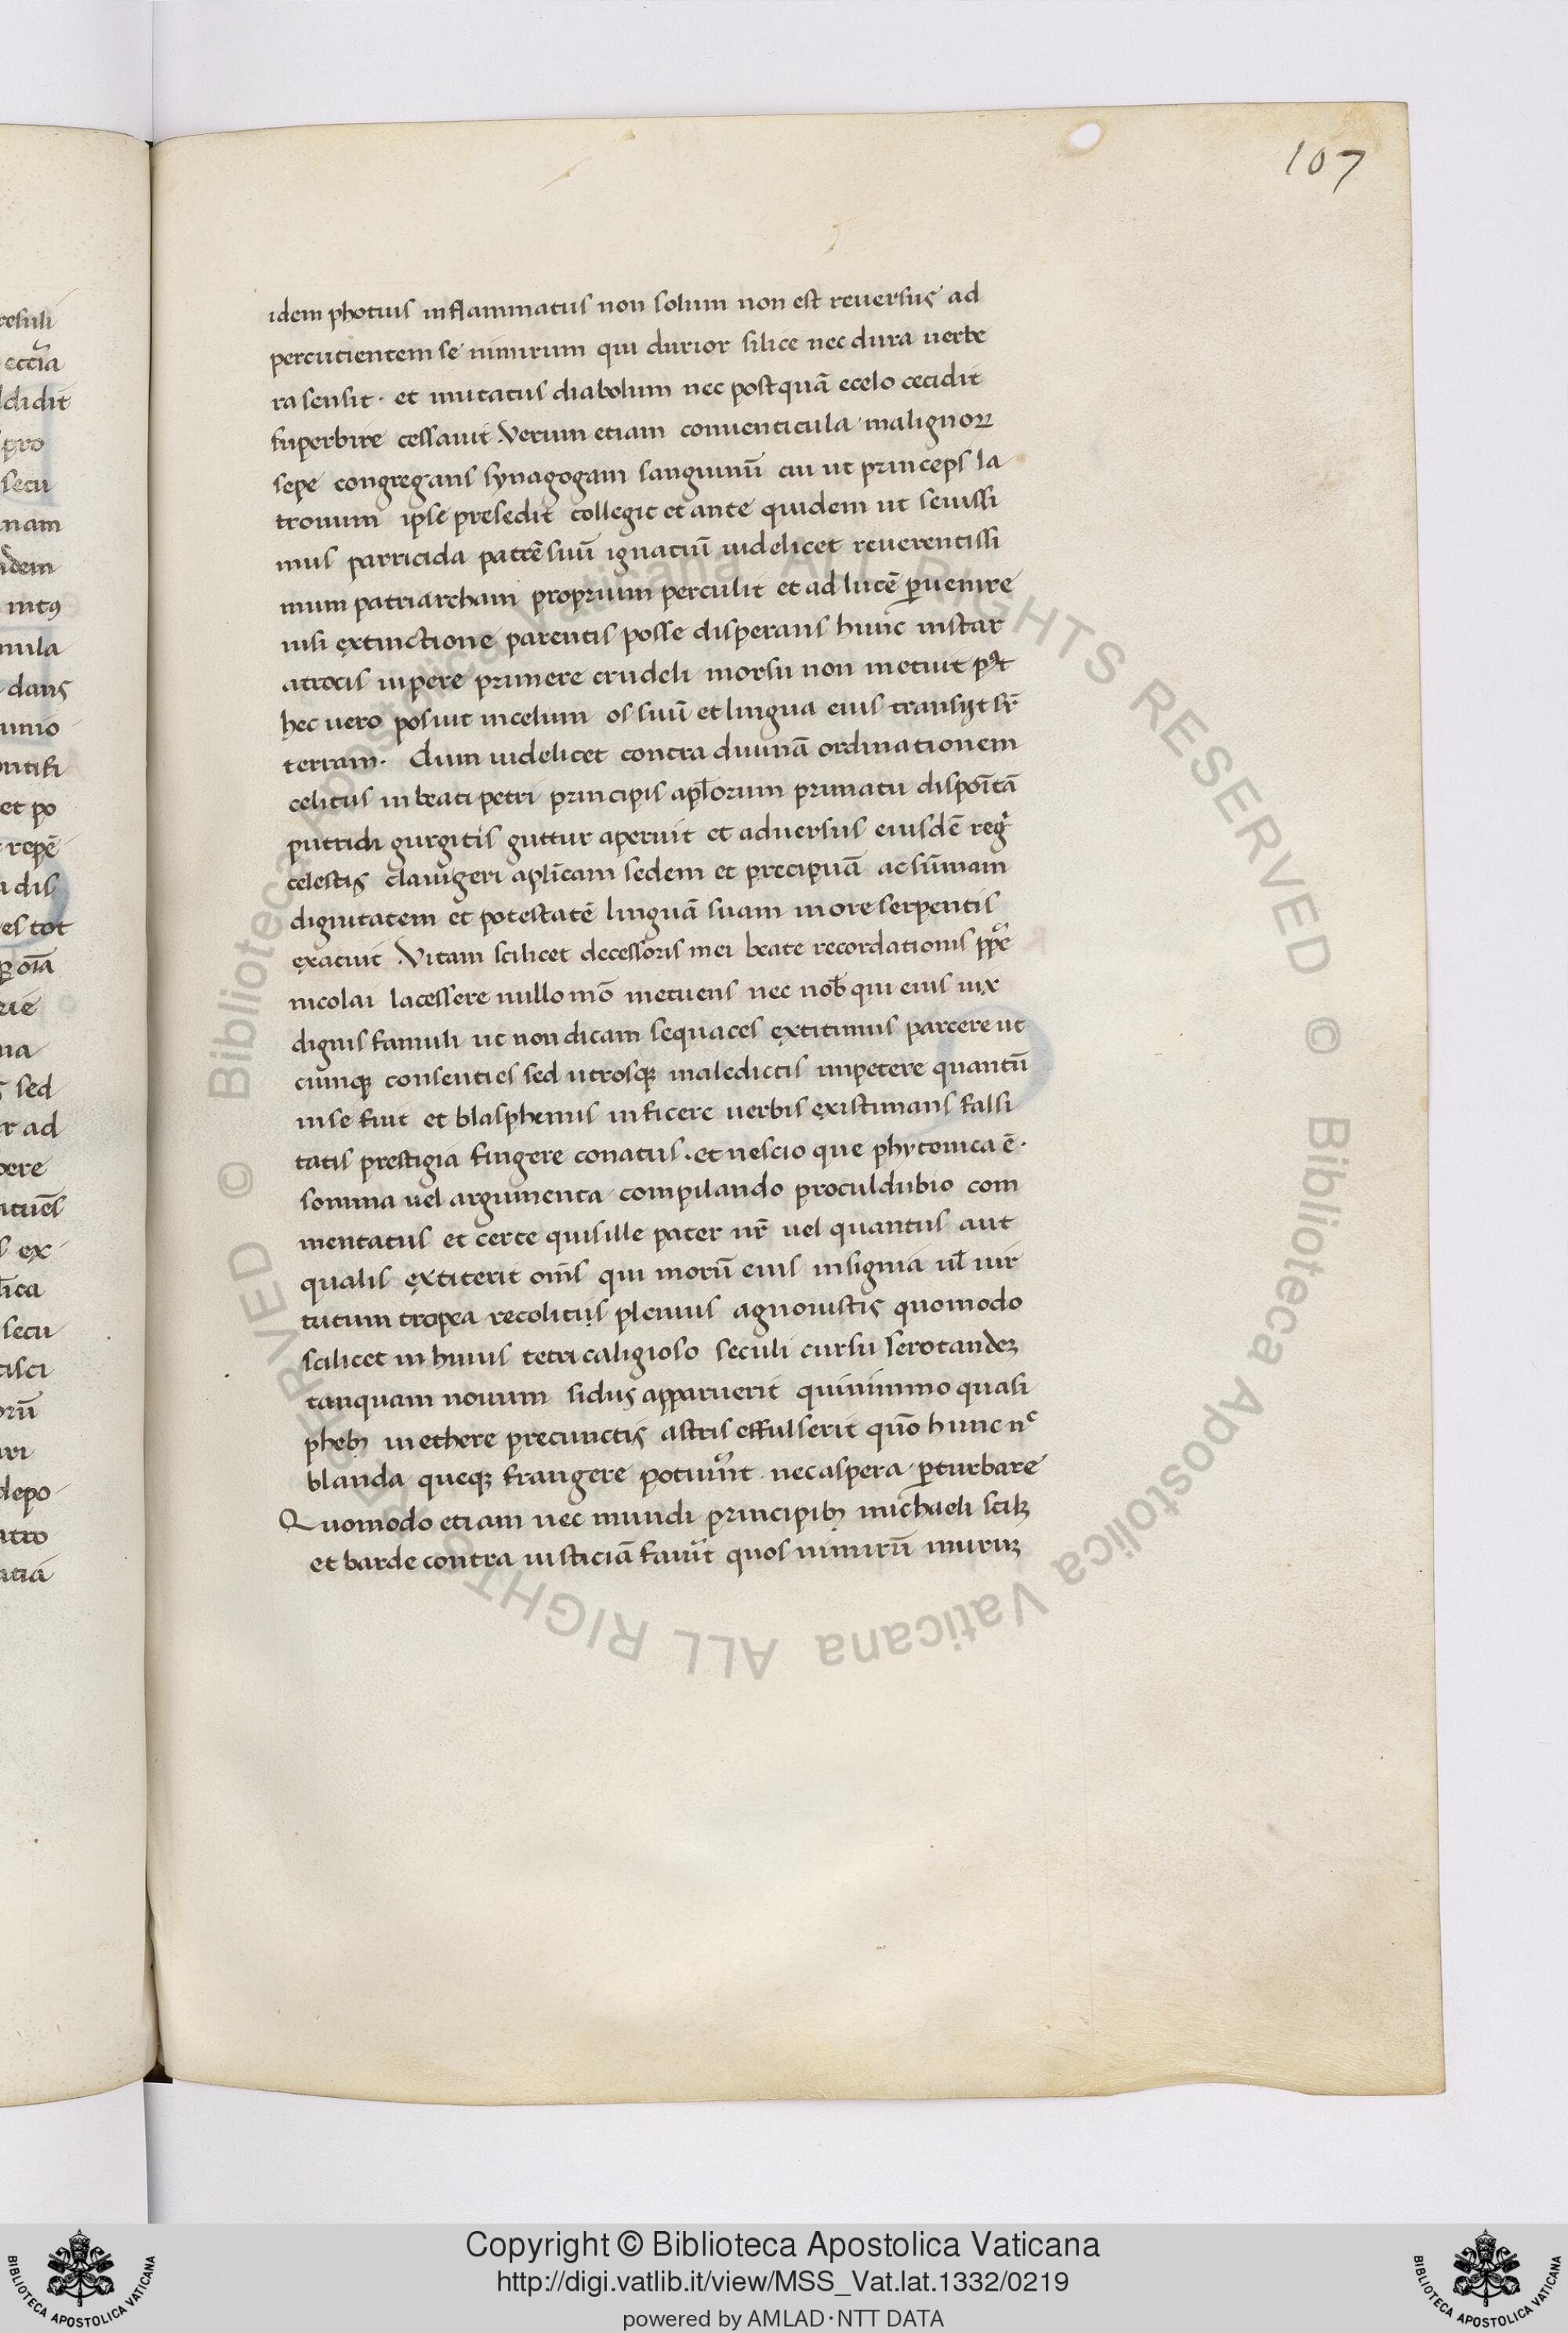 107
idem photius inflammatus non solum non est reuersus ad
percutientem se nimirum qui durior silice nec dura uerbe
ra sensit · et imitatus diabolum nec postquã e celo cecidit
superbire cessauit Verum etiam conuenticula malignoꝝ
sepe congregans synagogam sanguinũ cui ut princeps la
tronum ipse presedit collegit et ante quidem ut seuissi
mus parricida patrẽ suũ ignatiũ uidelicet reuerentissi
mum patriarcham proprium perculit et ad lucẽ ꝑuenire
nisi extinctione parentis posse disperans hunc instar
atrocis uipere primere crudeli morsu non metuit pꝰt
hec uero posuit in celum os suũ et lingua eius transijt sr̄
terram · dum uidelicet contra diuinã ordinationem
celitus in beati petri principis apl̃orum primatu dispoĩtã
putridi gurgitis guttur aperuit et aduersus eiusdẽ regͥ
celestis clauigeri apl̃icam sedem et precipuã ac sũmam
dignitatem et potestatẽ linguã suam more serpentis
exacuit Vitam scilicet decessoris mei beate recordationis pp̃e
nicolai lacessere nullo mõ metuens nec nob̃ qui eius uix
dignis famuli ut non dicam sequaces extitimus parcere ut
cumqꝫ consenties sed utrosqꝫ maledictis impetere quantũ
in se fuit et blasphemis inficere uerbis existimans falsi
tatis prestigia fingere conatus · et nescio que phytonica ẽ ·
somnia uel argumenta compilando proculdubio com
mentatus et certe quis ille pater nr̃ uel quantus aut
qualis extiterit om̃s qui morũ eius insignia ul̃ uir
tutum tropea recolitis plenius agnouistis quomodo
scilicet in huius tetri caligioso seculi cursu sero tandeꝫ
tanquam nouum sidus apparuerit quinimmo quasi
phebꝫ in ethere pre cunctis astris effulserit quõ hunc nͨ
blanda queqꝫ frangere potuer̃nt nec aspera ꝑturbare
Quomodo etiam nec mundi principibꝫ michaeli scilꝫ
et barde contra iusticiã fauĩt quos nimirũ muruꝫ
resuli
eccl̃a
didit
pro
secu
nam
idem
intꝰ
mula
dans
ntifi
et po
repẽ
a dis
es tot
ꝑ oĩa
sed
r ad
pere
ituẽs
ex
secu
tisci
orũ
depo
atro
© Biblioteca Apostolica Vaticana ALL RIGHTS RESERVED © Biblioteca Apostolica Vaticana ALL RIGHTS RESERVED
BIBLIOTECA APOSTOLICA VATICANA
Copyright © Biblioteca Apostolica Vaticana
http://digi.vatlib.it/view/MSS_Vat.lat.1332/0219
powered by AMLAD·NTT DATA
BIBLIOTECA APOSTOLICA VATICANA